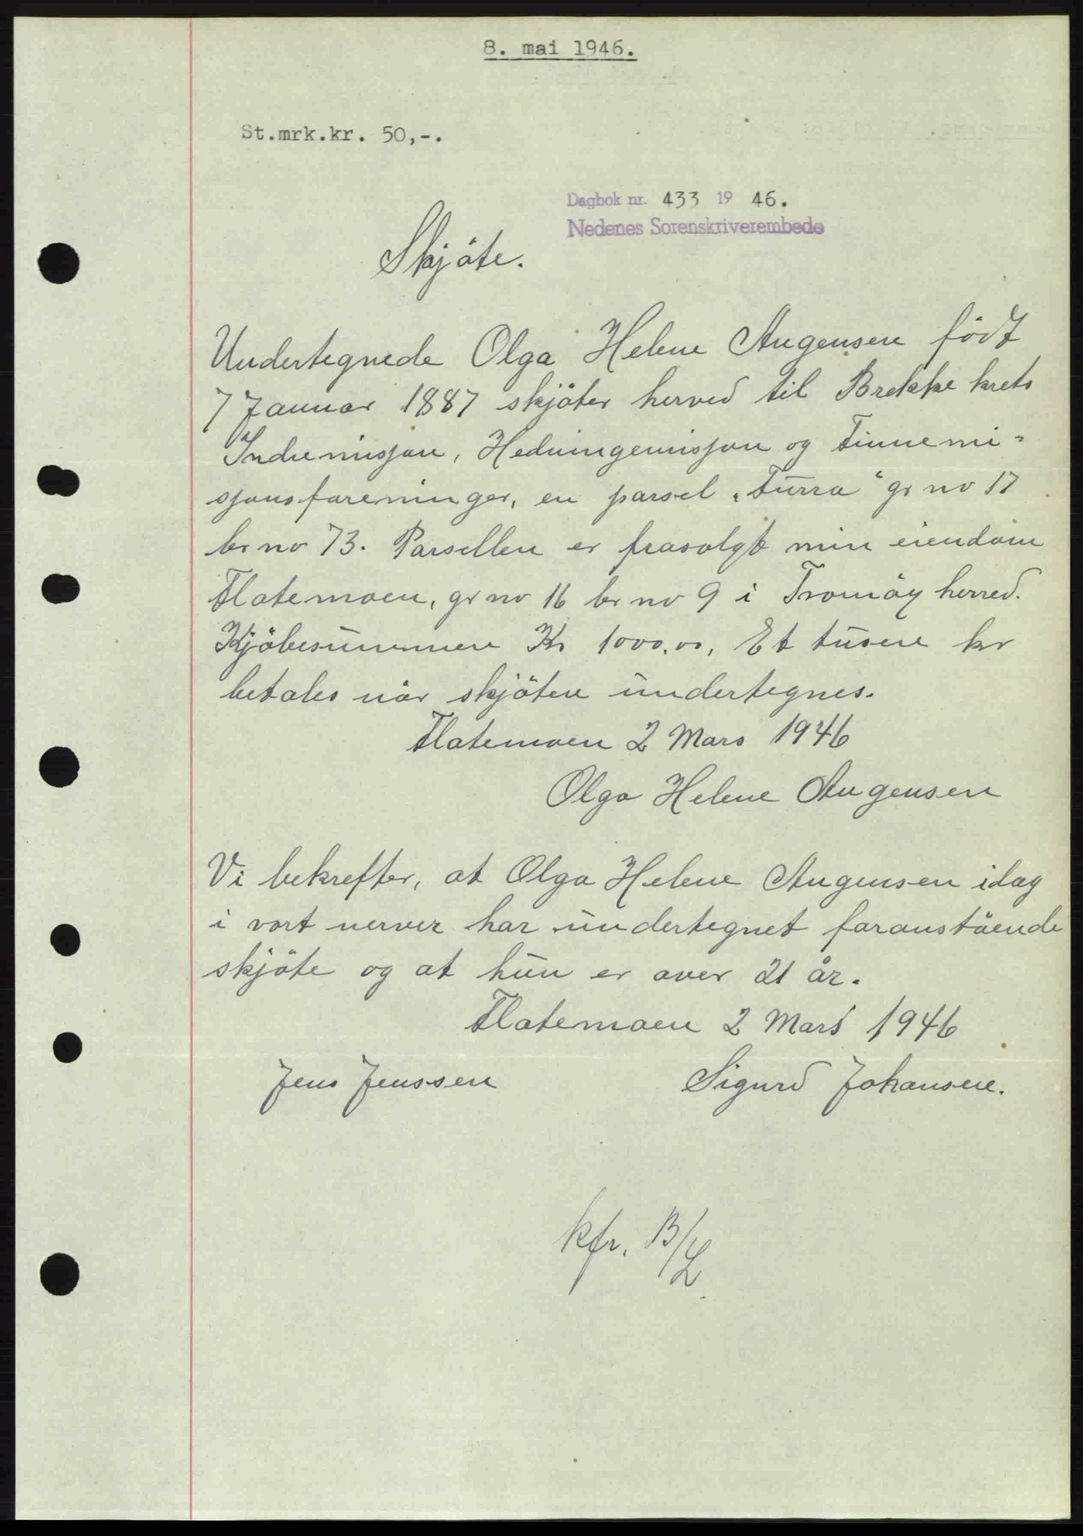 8. mai 1946.
St.mrk.kr. 50,-.
Dagbok nr. 433 19 46.
Nedenes Sorenskriverembede
Skjöte.
Undertegnede Olga Helene Augensen född
7 Januar 1887 skjöter herved til Brekke krets
Indremisjon, Hedningemisjon og Finnemi-
sjonsforeninger, en parsel "Furra" gr no 17
br no 73. Parsellen er frasolgt min eiendom
Flatemoen, gr no 16 br no 9 i Tromöy herred.
Kjöbesummen Kr 1000.00, Et tusen kr
betales når skjöten undertegnes.
Flatemoen 2 Mars 1946
Olga Helene Augensen
Vi bekrefter, at Olga Helene Augensen idag
i vort nerver har undertegnet foranstående
skjöte og at hun er over 21 år.
Flatemoen 2 Mars 1946
Jens Jenssen Sigurd Johansen.
kfr. B/L